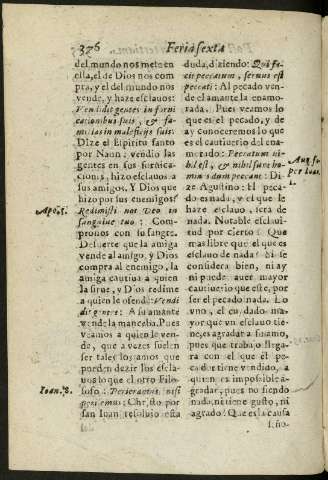 376 Feria sexta
del mundo nos mete en
ella, el de Dios nos com
pra, y el del mundo nos
vende, y haze esclauos:
Vendidit gentes in forni
cationibus suis, & fa-
milias in maleficijs suis.
Dize el Espiritu santo
por Naun: vendio las
gentes en sus fornica-
ciones, hizo esclauos a
sus amigos. Y Dios que
hizo por sus enemigos?
Apo. 5.
Redimisti nos Deo in
sanguine tuo: Com-
pronos con su sangre.
De suerte que la amiga
vende al amigo, y Dios
compra al enemigo, la
amiga cautiua a quien
la sirue, y Dios redime
a quien le ofende: Vendi
dit gentes: A su amante
vende la manceba. Pues
veamos a quien le ven-
de, que a vezes suelen
ser tales los amos que
pueden dezir los escla-
uos lo que el otro Filo-
sofo:
Ioan. 8.
Christo por
san Iuan resoluio esta
duda, diziendo: Qui fa-
cit peccatum, seruus est
peccati: Al pecado ven-
de el amante la enamo-
rada. Pues veamos lo
que es el pecado, y de
ay conoceremos lo que
es el cautiuerio del ena-
morado: Peccatum ni-
hil est, & nihil sunt ho-
mines dum peccant: Di-
Aug. su-
per Ioan.
ze Agustino: El peca-
do es nada, y el que le
haze esclauo, serà de
nada. Notable esclaui-
tud por cierto! Que
mas libre que el que es
esclauo de nada? Si se
considera bien, ni ay
ni puede auer mayor
cautiuerio que este, por
ser el pecado nada. Lo
vno, el cuydado ma-
yor que vn esclauo tie-
ne, es agradar a su amo,
pues que trabajo llega-
rà con el que el pe-
cador tiene vendido, a
quien es impossible a-
gradar, pues no siendo
nada, ni tiene gusto, ni
agrado? Que es la causa